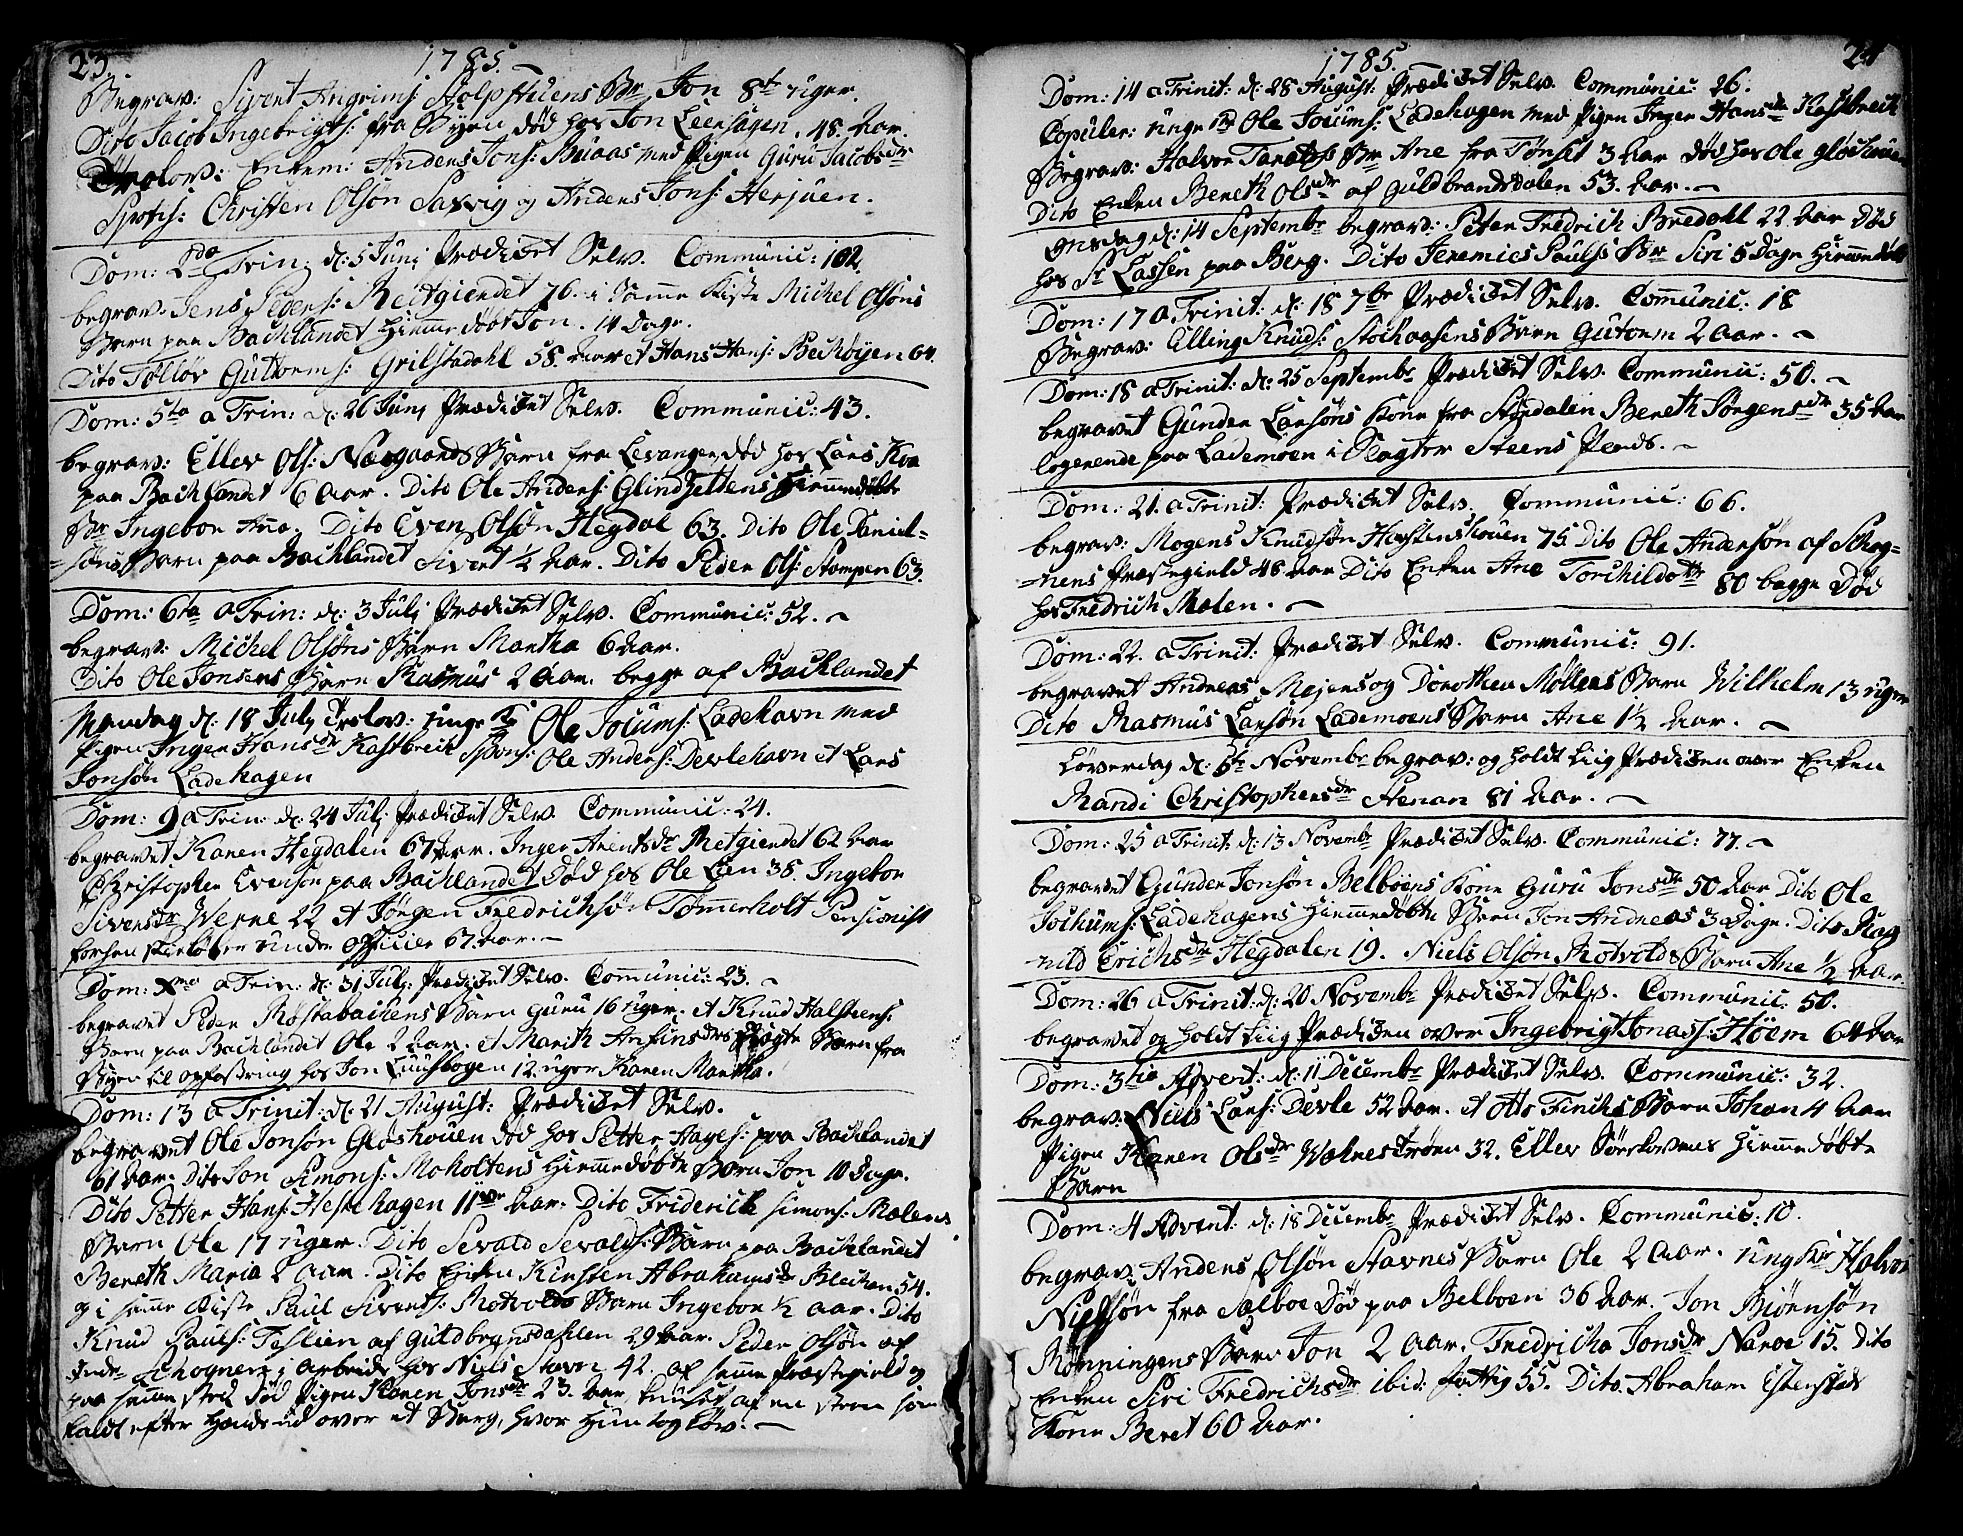 23. 1785.
Begrav: Sivert Angrims: Stolpstuens Br Jon 8te uger.
Dito Jacob Ingebrigts: fra Byen, død hos Jon Leersagen. 48. Aar.
Trolov: Enkem: Anders Jons: Buaas med Pigen Guru Jacobsdr
Spons: Christen Olsøn Saxvig og Anders Jons: Herjuen.
Dom: 2da Trin: d: 5 Junj Prædicet Selv. Communic: 102.
begrav: Jens Peders: Reitgiendet 76. i samme Kiste Michel Olsøns
Barn paa Bachlandet hiemmedøbt Jon. 14 Dage.
Dito Tølløv Guttorms: Grilstadahl 58. Aar et Hans Hans: Bechøyen 64.
Dom: 5ta a Trin: d: 26 Junj Prædicet Selv. Communic: 43.
begrav: Eller Ols: Næsgaards Barn fra Levanger, død hos Lars Kva
paa Bachlandet 6 Aar. Dito Ole Anders: Glindzettens hiemmedøbte
Br Ingebor Ana. Dito Even Olsøn Hegdal 63. Dito Ole Daniel-
-søns Barn paa Bachlandet Sivert ½ Aar. Dito Peder Ols: Stompen 63.
Dom: 6ta a Trin: d: 3 Julj Prædicet Selv. Communic: 52.
begrav: Michel Olsøns Barn Martha 6 Aar.
Dito Ole Jonsens Barn Rasmus 2 Aar. begge af Bachlandet
Mandag d: 18 Julj Trolov: unge K: Ole Jocums: Ladehavn med
Pigen Inger Hansdr Kastbreck Spons: Ole Anders: Devlehavn et Lars
Jonsøn Ladehagen
Dom: 9 a Trin: d: 24 Julj Prædicet Selv. Communic: 24.
begravet Karen Hegdalen 67 Aar. Inger Arentsdr Retgiendet 62 Aar
Christopher Evensøn paa Bachlandet død hos Ole Lien 38. Ingebor
Siversdr Werne 22 et Jørgen Fredrichsøn Tømmerholt Pensionist
forhen skieløber under Officier 67. Aar.
Dom: Xma a Trin: d: 31 Julj Prædicet Selv. Communic: 23.
begravet Peder Røstabachens Barn Guru 16 uger. et Knud Halsteens:
Barn paa Bachlandet Ole 2 Aar. et Marith Anfinsdrs Barn fra
Byen til opfostring hos Jon Lundsbogen 12 uger Karen Martha.
Dom: 13 a Trinit: d: 21 August: Prædicet Selv.
begravet Ole Jonsøn Gløshouen død hos Petter Hages: paa Bachlandet
61 Aar. Dito Jon Simons: Moholtens hiemmedøbte Barn Jon 10 Dage.
Dito Petter Hans: Heste hagen 11 Aar. Dito Friderich Simons: Mælens
Barn Ole 17 uger. Dito Sevald Sevalds: Barn paa Bachlandet
Bereth Maria 2 Aar. Dito Enken Kirsten Abrahamsdr Blechen 54.
og i samme Kiste Paul Siverts: Rotvolds Barn Ingebor ½ Aar. Dito
Knud Pauls: Teslien af Guldbransdahlen 29 Aar. Peder Olsøn af
Schogners i arbeide hos Niels Stavn 42. af samme Præstegield og
paa samme sted død Pigen Karen Jonsdr 23. Aar knuset af en steen som
faldt efter hende ud over et Berg, hvor hun tog Løv.
24 1785.
Dom: 14 a Trinit: d: 28 August: Prædicet Selv. Communic: 26.
Copuler: unge K Ole Jocums: Ladehagen med Pigen Inger Hansdr Kastbreck
Begrav: Halvor Br Ane fra Tønset 3 Aar død hos Ole Gløshouen
Dito Enken Bereth Olsdr af Guldbrandsdalen 53. Aar.
Onsdag d: 14 Septembr begrav: Peter Fredrich Bredahl 22 Aar død
hos Sr Lassen paa Berg. Dito Jeremies Pauls: Br Siri 5 Dage hiemmedøbt
Dom: 17 a Trinit: d: 18 7br Prædicet Selv. Communic: 18
Begrav: Elling Knuds: Stochaasens Barn Gutorm 2 Aar.
Dom: 18 a Trinit: d: 25 Septembr Prædicet Selv. Communic: 50.
begravet Gunder Larsøns Kone fra Størdalen Bereth Jørgensdr 35 Aar
logerende paa Lademoen i Slagter Steens Plads.
Dom: 21. a Trinit: Prædicet Selv. Communic: 66.
begrav: Mogens Knudsøn Harstenshouen 75. Dito Ole Andersøn af Schog-
-ners Præstegield 48 Aar Dito Enken Ane Torchildsdr 80 begge død
hos Fredrich Mælen.
Dom: 22. a Trinit: Prædicet Selv. Communic: 91.
begravet Andreas Mejers og Dorothea Møllers Barn Wilhelm 13 uger
Dito Rasmus Larsøn Lademoens Barn Ane 1½ Aar.
Løverdag d: 5te Novembr begrav: og holdt Liig Prædicken over Enken
Randi Christophersdr Stenan 81 Aar.
Dom: 25 a Trinit: d: 13 Novembr Prædicet Selv. Communic: 77.
begravet Gunder Jonsøn Belboens Kone Guru Jonsdr 50 Aar Dito Ole
Jochums: Ladehagens hiemmedøbte Barn Jon Andreas 3 Dage. Dito Rag
-nild Erichsdr Hegdalen 19. Niels Olsøn Rotvolds Barn Ane ½ Aar.
Dom: 26 a Trinit: d: 20 Novembr Prædicet Selv. Communic: 50.
begravet og holdt Liig Prædicken over Ingebrigt Jonass: Høem 64 Aar
Dom: 3tie Advent: d: 11 Decembr Prædicet Selv. Communic: 32.
begrav: Niels Lars: Devle 52 Aar. et Otto Finchs Barn Johan 4 Aar
Pigen Karen Olsdr Wolnestrøen 32. Eller Sørskovens hiemmedøbte
Barn
Dom: 4 Advent: d: 18 Decembr Prædicet Selv. Communic: 10.
begrav: Anders Olsøn Stavnes Barn Ole 2 Aar. ung Kr Halvor
Nielsøn fra Selboe død paa Belboen 36 Aar. Jon Biørnsøn
Rønningens Barn Jon 2 Aar. Fredricha Jonsdr Naroe 15. Dito
Enken Siri Fredrichsdr ibid: fattig 55. Dito Abraham Estenstads
Kone Beret 60 Aar.